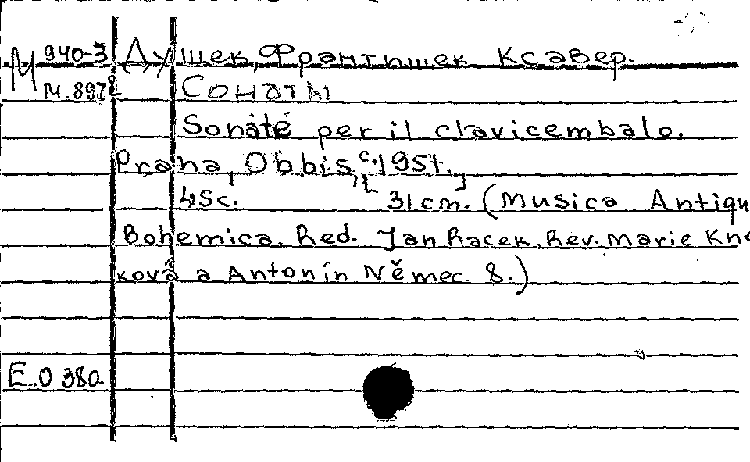 М 940-3 Душек, Франтишек Ксавер.
М.897 Сонаты
Sonáte per il clavicembalo.
Praha, Orbis, [c. 1951.]
45c. 31cm. (Musica Antiqu
Bohemica. Red. Jan Racek. Rev. Marie Kn
ková a Antonín Němec 8.)
E.0 380